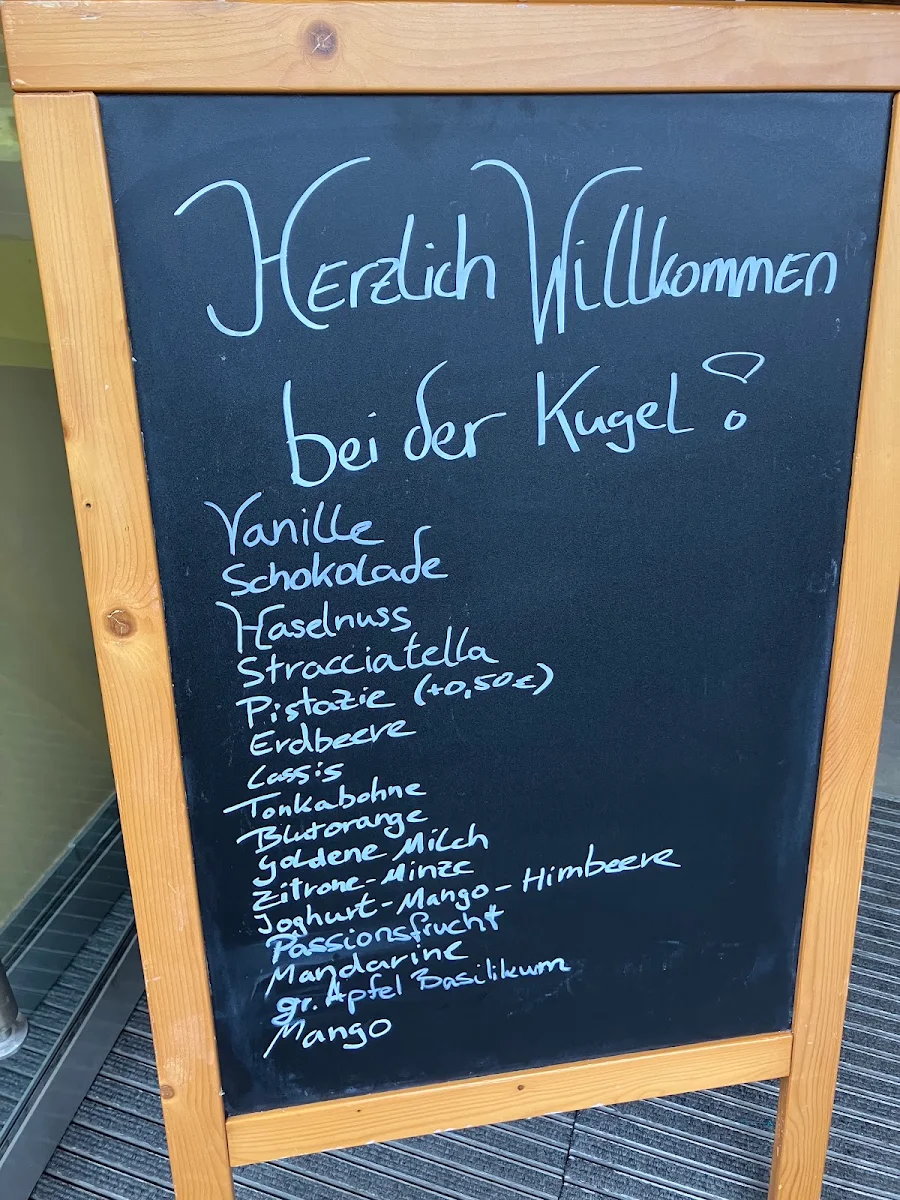 Herzlich Willkommen
bei der Kugel!
Vanille
Schokolade
Haselnuss
Stracciatella
Pistazie (+0,50€)
Erdbeere
Cassis
Tonkabohne
Blutorange
goldene Milch
Zitrone-Minze
Joghurt-Mango-Himbeere
Passionsfrucht
Mandarine
gr. Apfel Basilikum
Mango